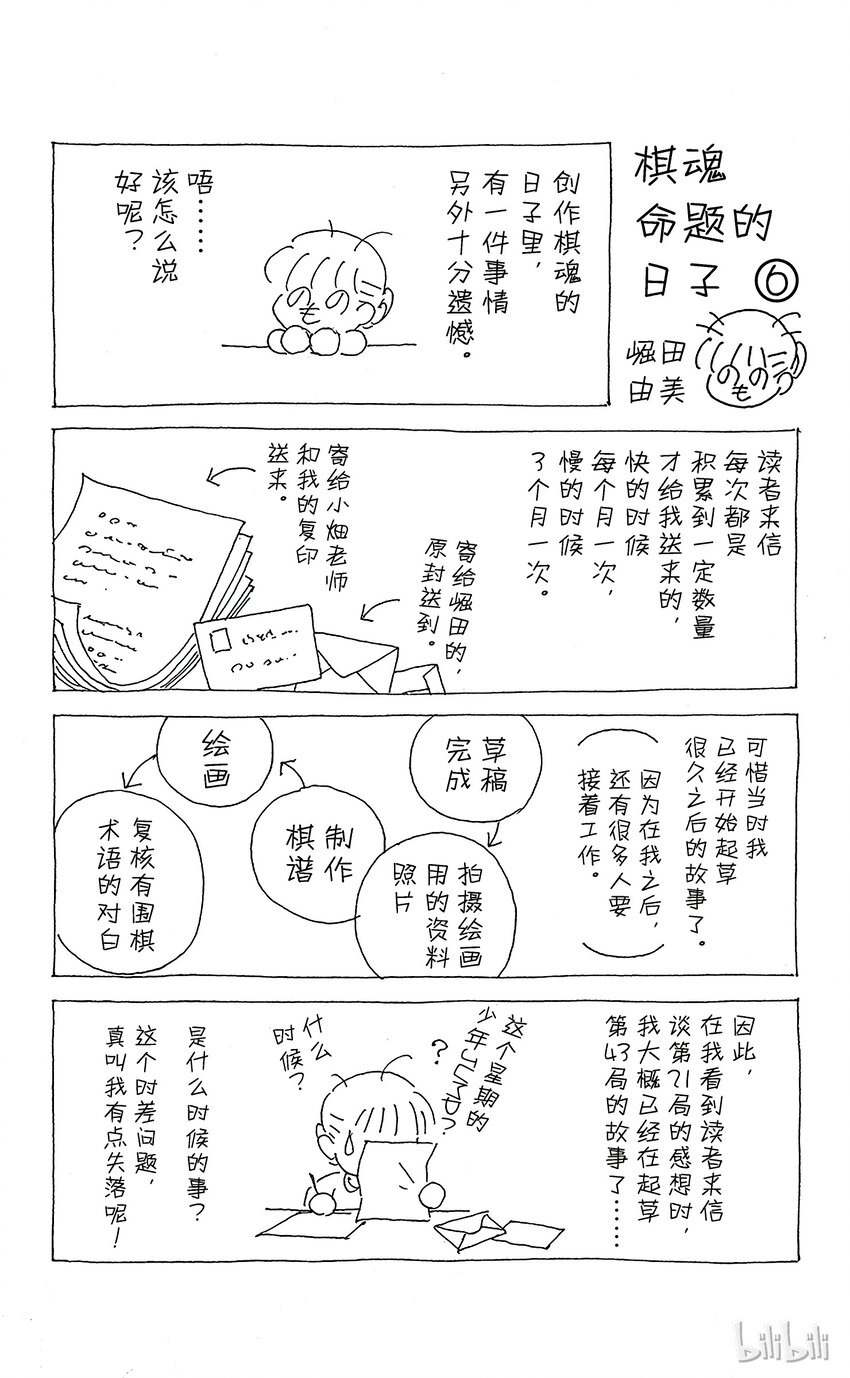 棋魂
命题的
日子 ⑥
崛田
由美
创作棋魂的
日子里，
有一件事情
另外十分遗憾。
のものう
唔……
该怎么说
好呢？
のものう
读者来信
每次都是
积累到一定数量
才给我送来的，
快的时候
每个月一次，
慢的时候
3个月一次。
寄给崛田的，
原封送到。
寄给小畑老师
和我的复印
送来。
可惜当时我
已经开始起草
很久之后的故事了。
（因为在我之后，
还有很多人要
接着工作。）
草稿
完成
拍摄绘画
用的资料
照片
制作
棋谱
绘画
复核有围棋
术语的对白
因此，
在我看到读者来信
谈第21局的感想时，
我大概已经在起草
第43局的故事了……
这个星期的
少年JUMP？
？
什么
时候？
是什么时候的事？
这个时差问题，
真叫我有点失落呢！
bilibili